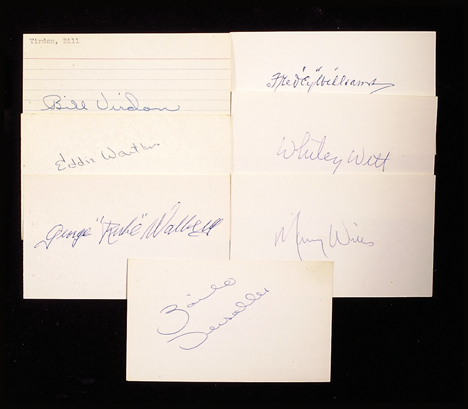 Virdon, Bill
Bill Virdon
Fred "Cy" Williams
Eddie Waitkus
Whitey Witt
George "Rube" Walberg
Maury Wills
Zoilo
Versalles